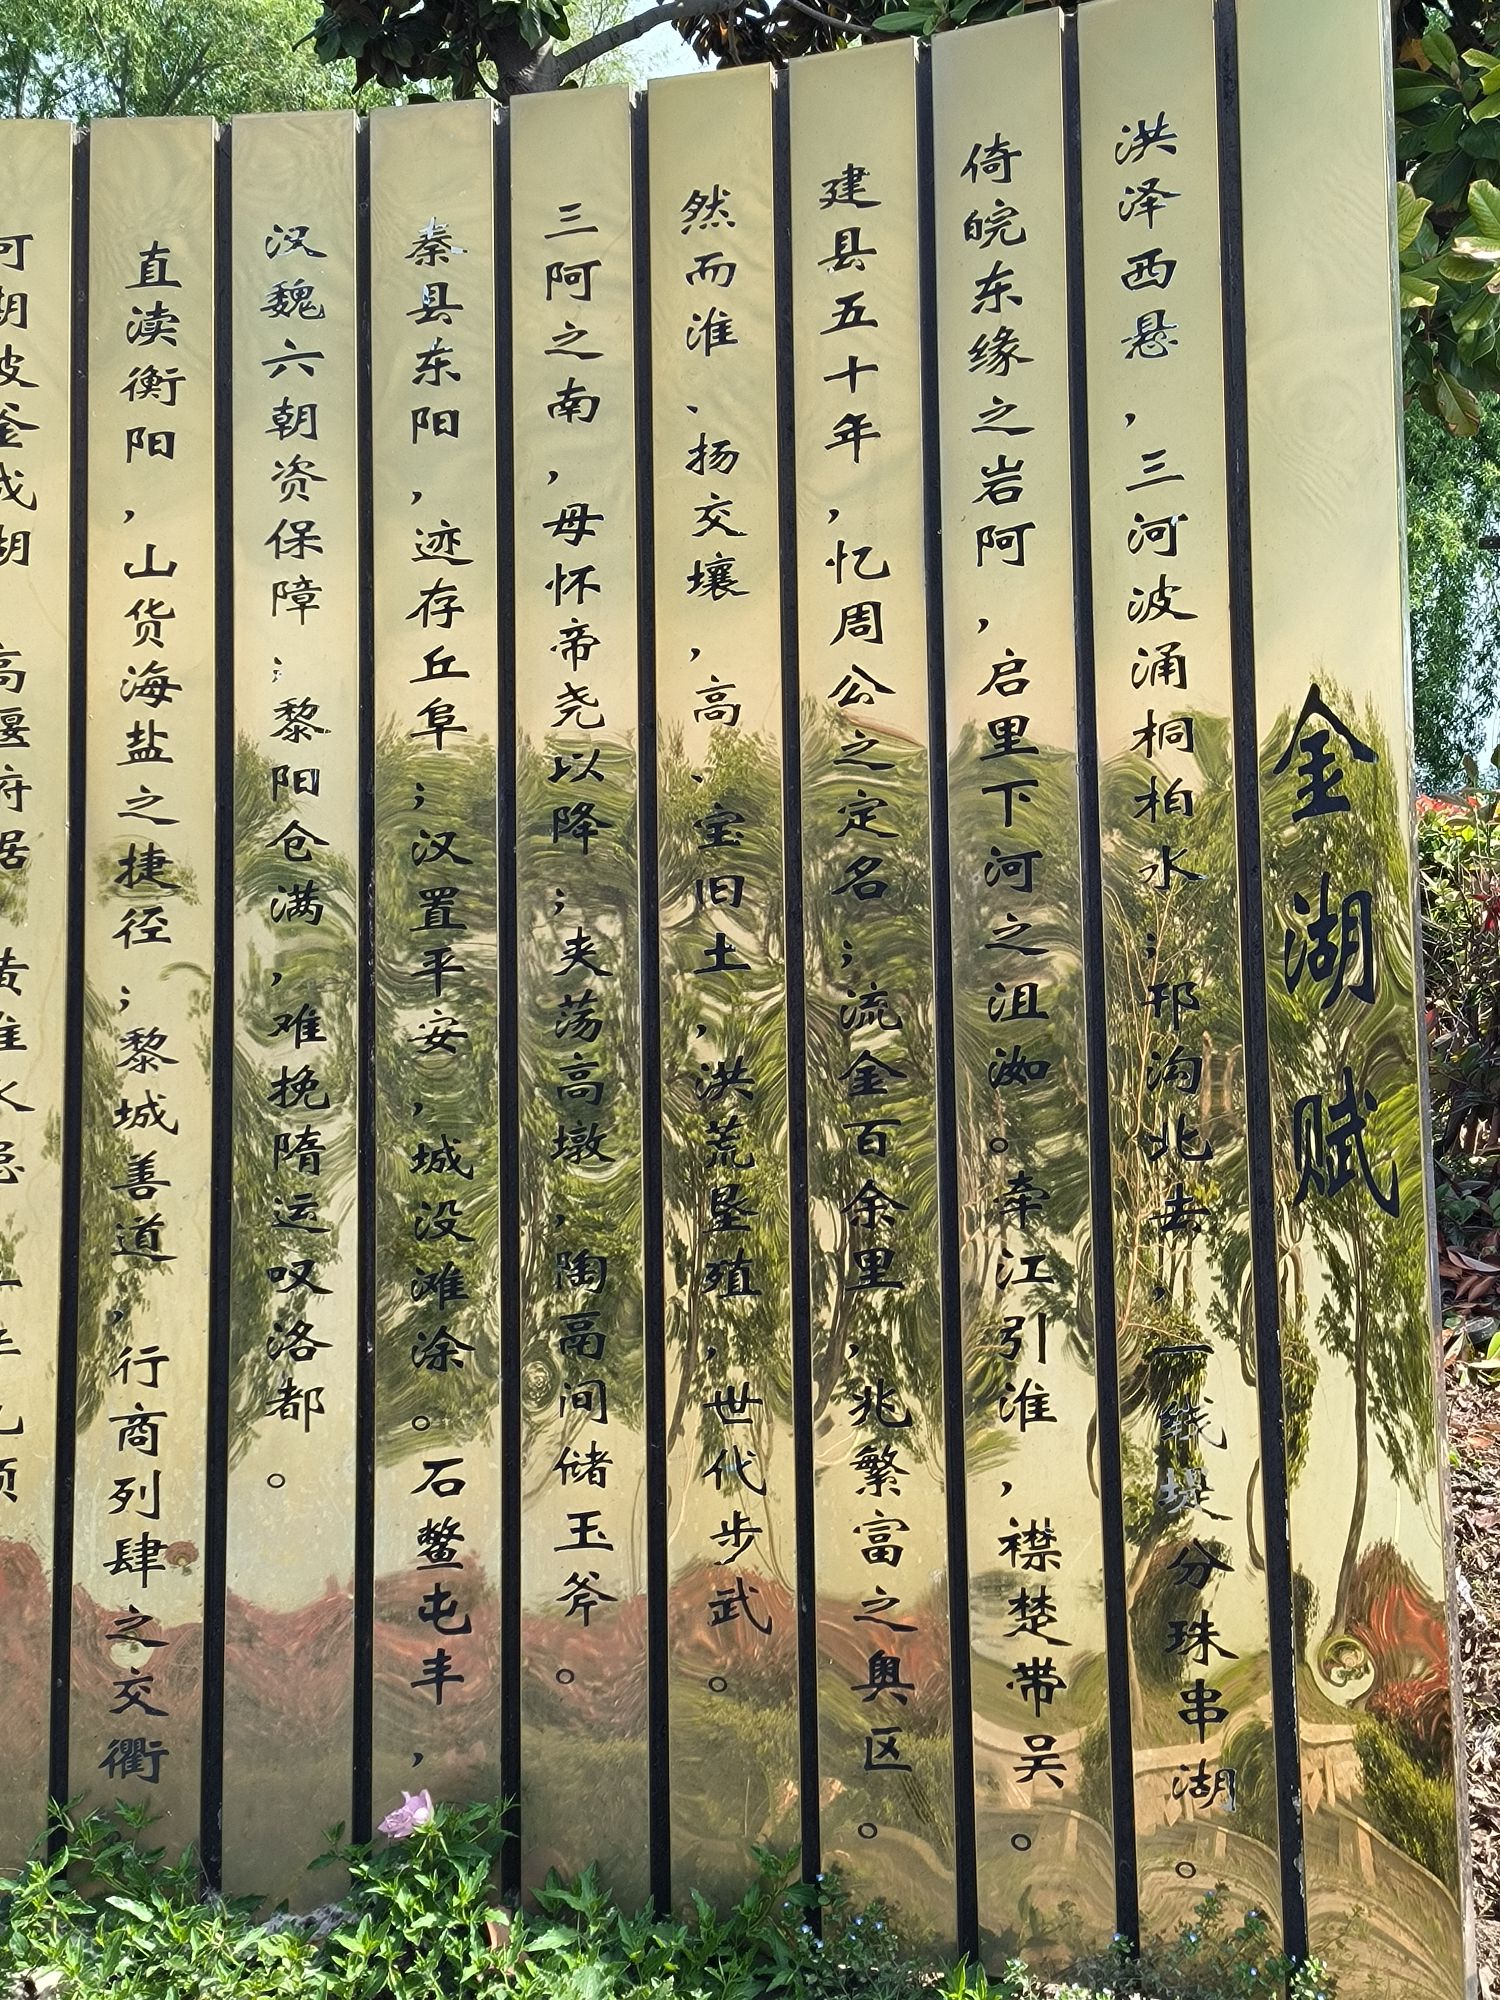 金湖赋
洪泽西悬，三河波涌桐柏水；邗沟北去，一线堤分珠串湖。
倚皖东缘之岩阿，启里下河之沮洳。牵江引淮，襟楚带吴。
建县五十年，忆周公之定名；流金百余里，兆繁富之奥区。
然而淮、扬交壤，高、宝旧土，洪荒垦殖，世代步武。
三阿之南，母怀帝尧以降；夹荡高墩，陶鬲间储玉斧。
秦县东阳，迹存丘阜；汉置平安，城没滩涂。石鳖屯丰，
汉魏六朝资保障；黎阳仓满，难挽隋运叹洛都。
直渎衡阳，山货海盐之捷径；黎城善道，行商列肆之交衢